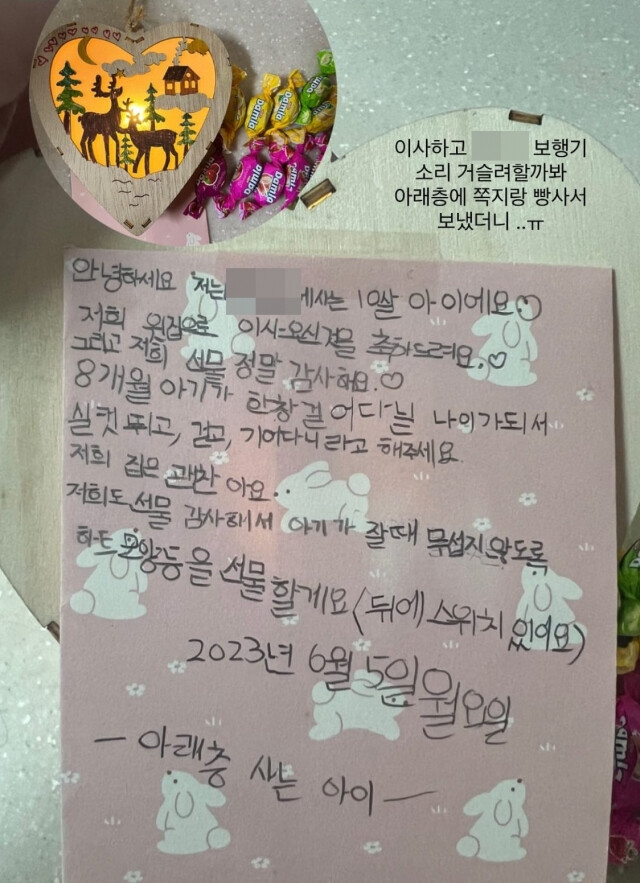 이사하고 보행기
소리 거슬려할까봐
아래층에 쪽지랑 빵사서
보냈더니 ..ㅠ
damla
damla
damla
damla
안녕하세요 저는 에사는 10살 아이에요
저희 윗집으로 이사오신걸을 축하드려요.♡
그리고 저희 선물 정말 감사해요.♡
8개월 아기가 한창 걸어다닐 나이가되서
실컷 뛰고, 걷고, 기어다니라고 해주세요.
저희 집은 괜찬아요.
저희도 선물 감사해서 아기가 잘때 무섭지 않도록
하트 모양등을 선물할게요 (뒤에 스위치 있어요)
2023년 6월 5일 월요일
- 아래층 사는 아이 -